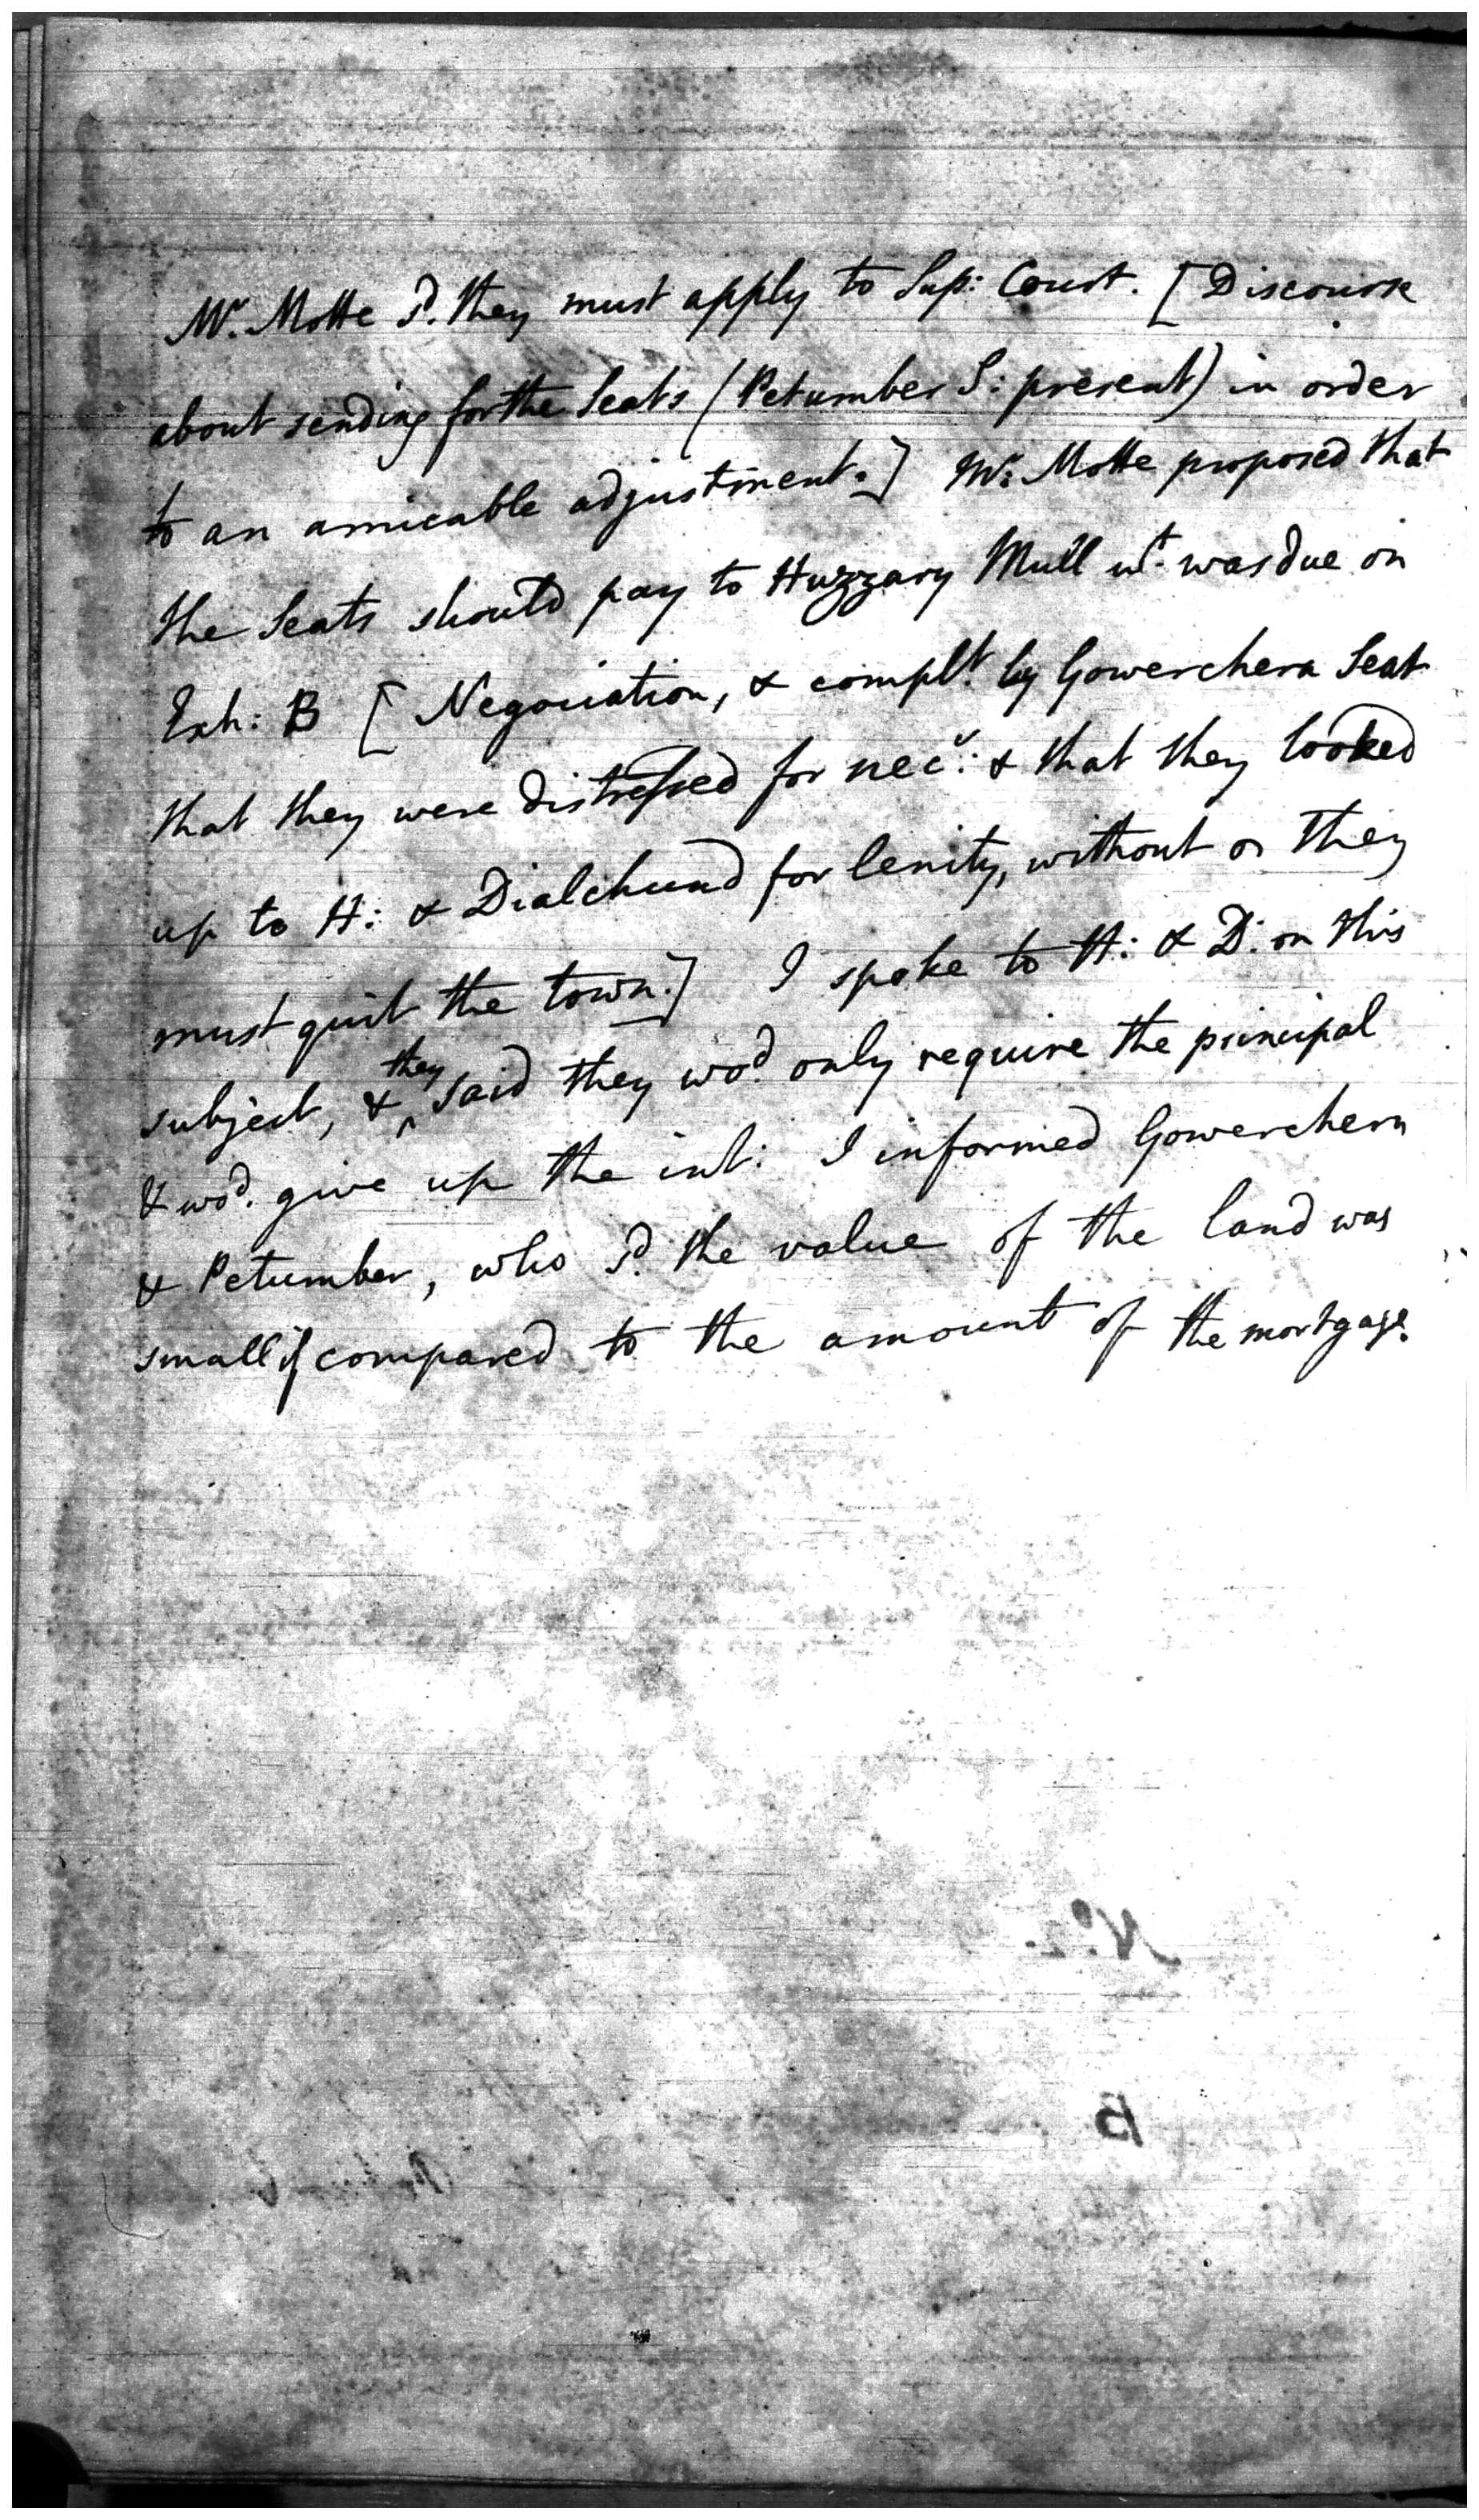 Mr. Motte sd. they must apply to Sup: Court. [Discourse
about sending for the Seats (Petumber S: present) in order
to an amicable adjustment.] Mr: Motte proposed that
the Seats should pay to Huzzary Mull wt. was due on
Exh: B [Negociation, & complt. by Gowerchern Seat
that they were distressed for necy: & that they looked
up to H: & Dialchund for lenity, without or they
must quit the town.] I spoke to H: & D: on this
subject, & they said they wod. only require the principal
& wod. give up the int: I informed Gowerchern
& Petumber, who sd. the value of the land was
small if compared to the amount of the mortgage.
No. 2.
B